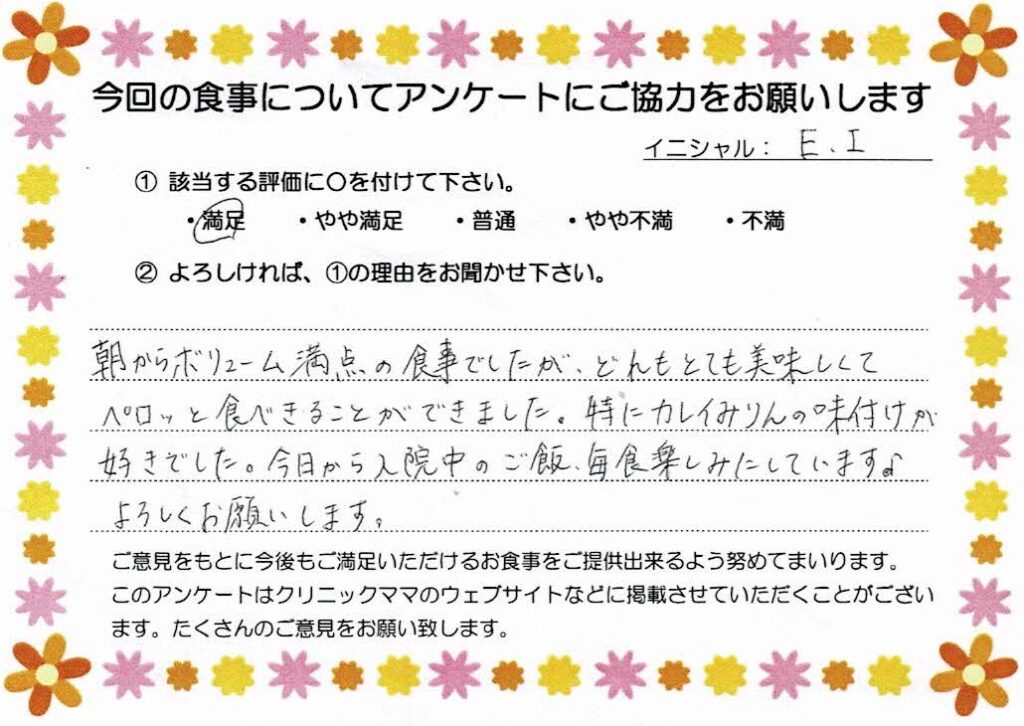 今回の食事についてアンケートにご協力をお願いします
イニシャル： E. I
① 該当する評価に〇を付けて下さい。
・満足 ・やや満足 ・普通 ・やや不満 ・不満
② よろしければ、①の理由をお聞かせ下さい。
朝からボリューム満点の食事でしたが、どれもとても美味しくて
ペロッと食べきることができました。特にカレイみりんの味付けが
好きでした。今日から入院中のご飯、毎食楽しみにしています♪
よろしくお願いします。
ご意見をもとに今後もご満足いただけるお食事をご提供出来るよう努めてまいります。
このアンケートはクリニックママのウェブサイトなどに掲載させていただくことがござい
ます。たくさんのご意見をお願い致します。